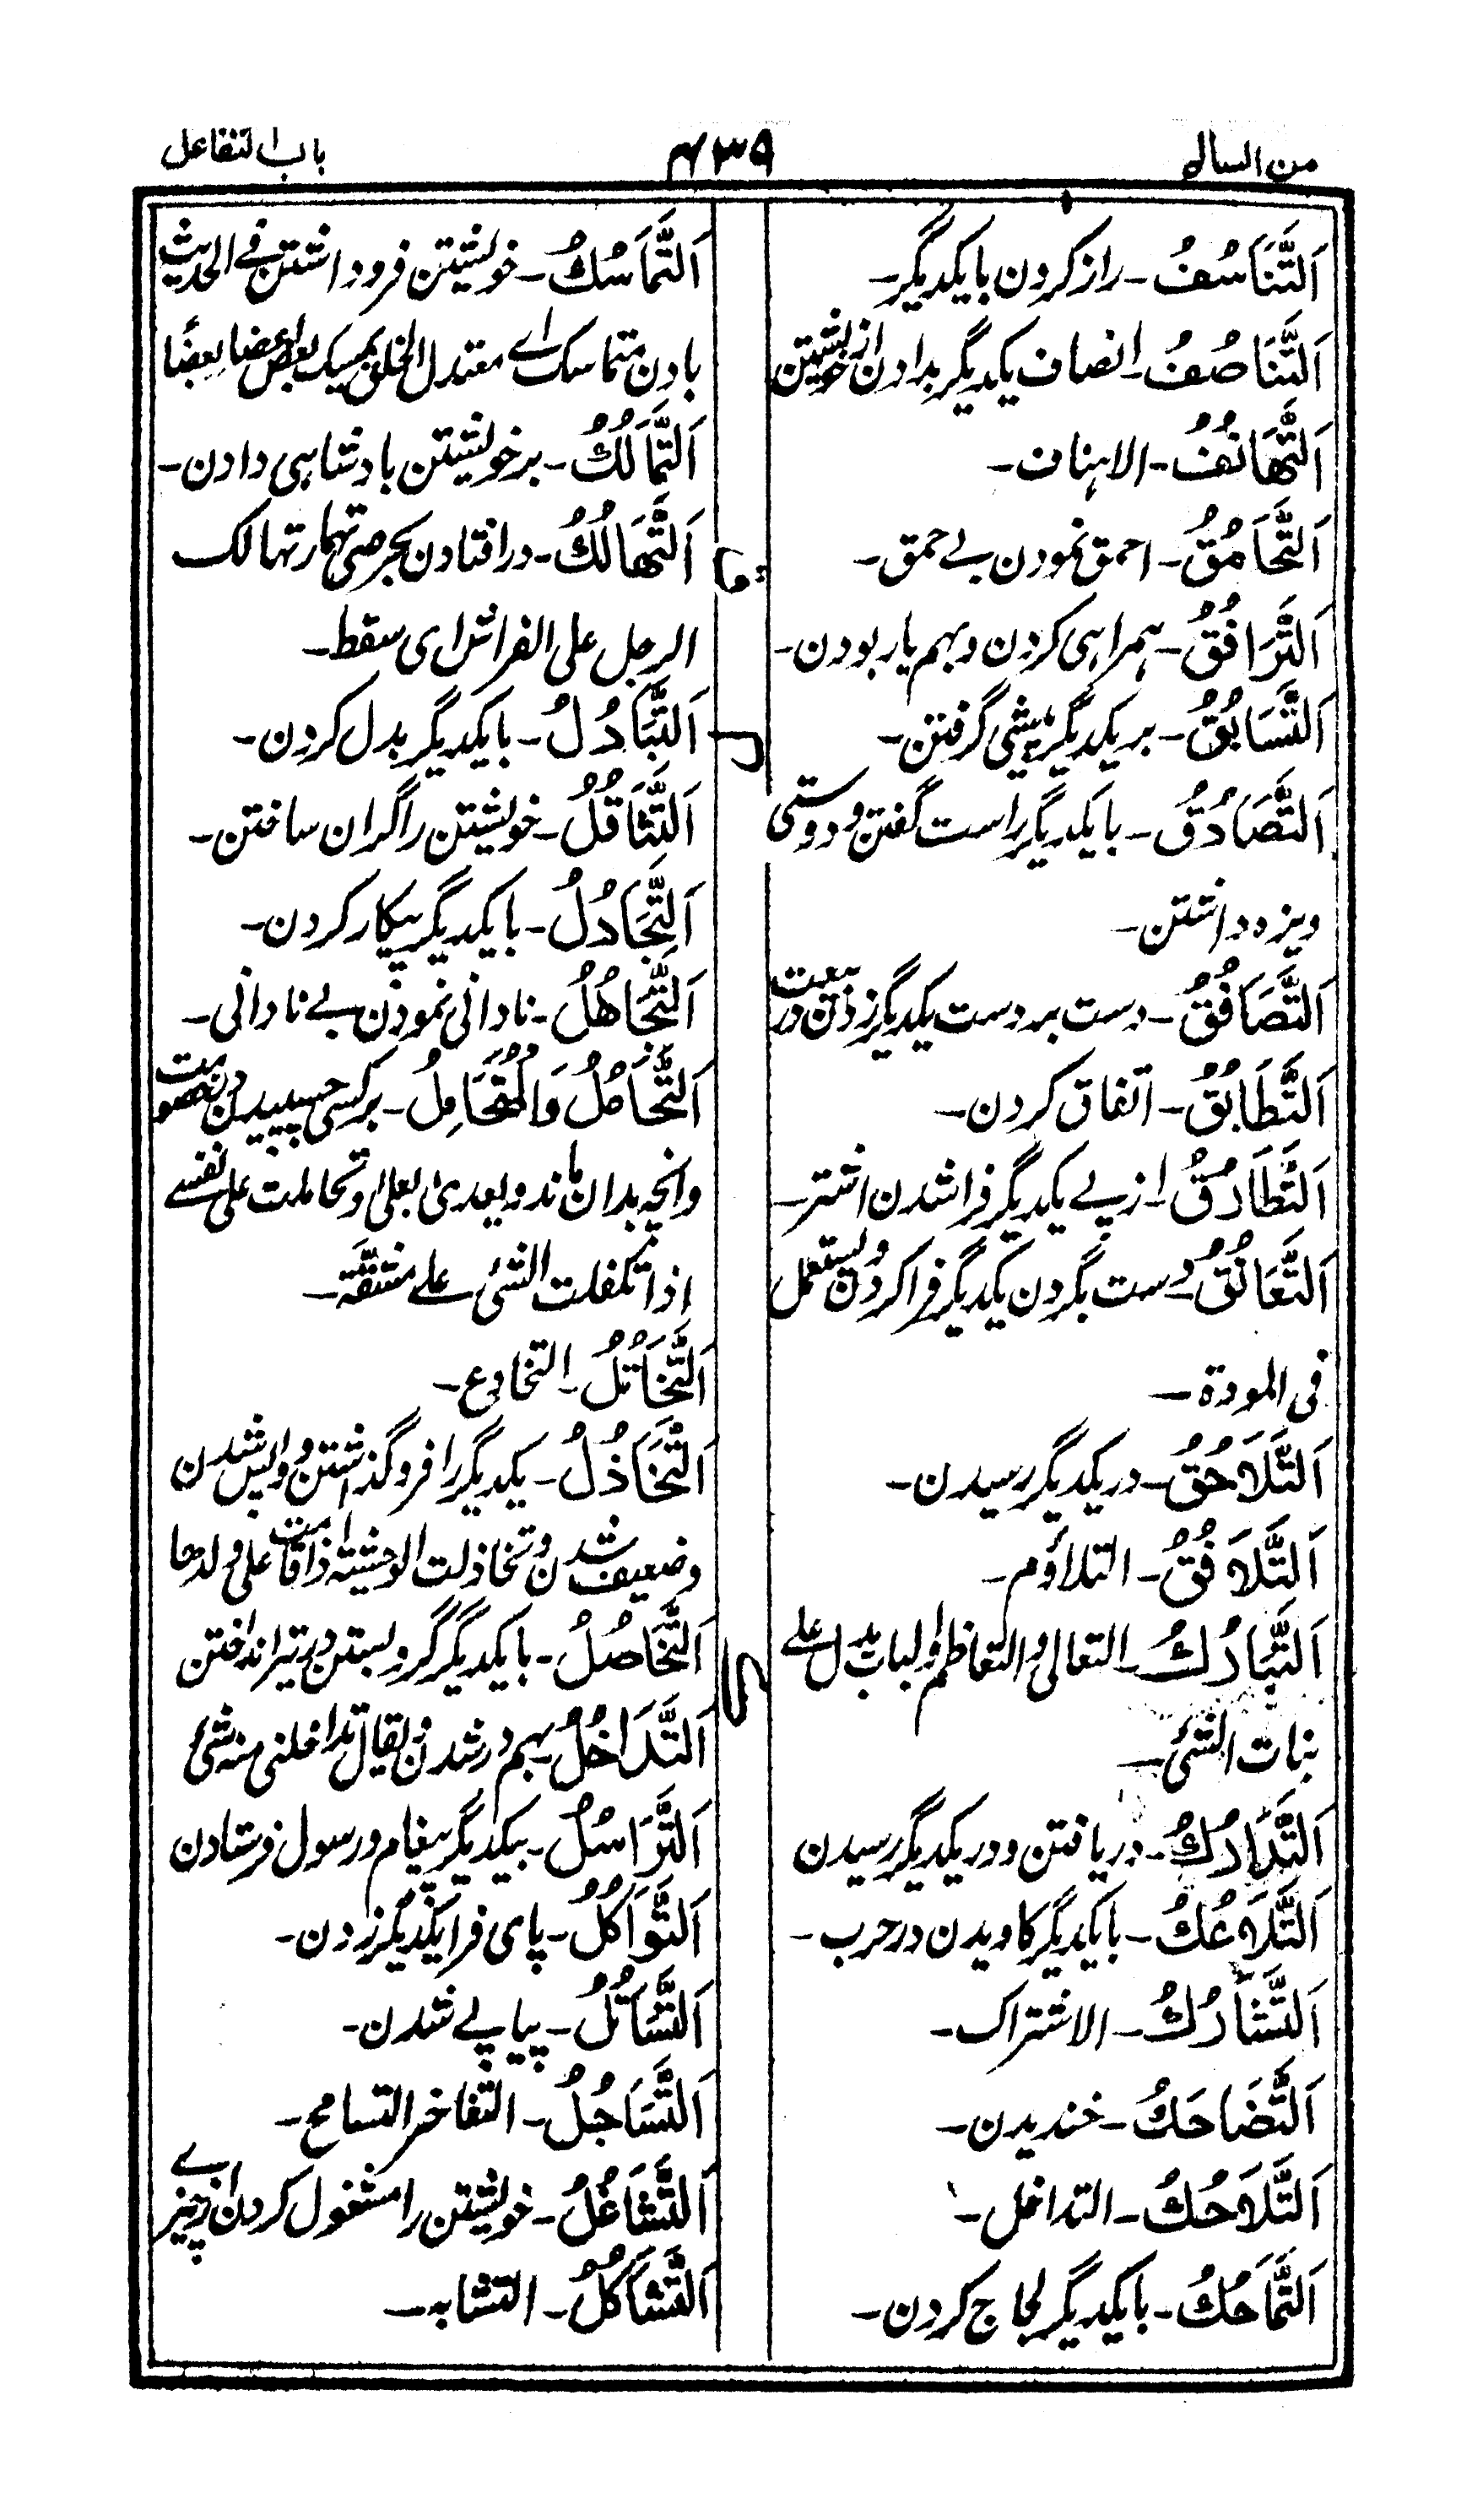 من السالم
۴۳۹
باب التفاعل
اَلتَّنَاسُفُ۔ راز کردن با یکدیگر۔
اَلتَّنَاصُفُ۔ انصاف یکدیگر بدادن از خویشتن
اَلتَّهَانُفُ۔ الاهناف۔
اَلتَّحَامُقُ۔ احمق نمودن بے حمق۔
اَلتَّرَافُقُ۔ همراهی کردن و بهم یار بودن۔
اَلتَّسَابُقُ۔ بر یکدیگر پیشی گرفتن۔
اَلتَّصَادُقُ۔ با یکدیگر راست گفتن و دوستی
ویزه داشتن۔
اَلتَّصَافُقُ۔ دست بر دست یکدیگر زدن در بیعت
اَلتَّطَابُقُ۔ اتفاق کردن۔
اَلتَّطَارُقُ۔ از پے یکدیگر فرا شدن اشتر۔
اَلتَّعَانُقُ۔ دست بگردن یکدیگر فرا کردن و یستعمل
فی المودة۔
اَلتَّلَاحُقُ۔ در یکدیگر رسیدن۔
اَلتَّلَافُقُ۔ التلاؤم۔
اَلتَّبَارُكُ۔ التعالی و التعاظم و الباب یدل علے
بنات الشئ۔
اَلتَّدَارُكُ۔ دریافتن و در یکدیگر رسیدن
اَلتَّلَاعُكُ۔ با یکدیگر کاویدن در حرب۔
اَلتَّشَارُكُ۔ الاشتراک۔
اَلتَّضَاحَكُ۔ خندیدن۔
اَلتَّلَاحُكُ۔ التداخل۔
اَلتَّمَاحُكُ۔ با یکدیگر لجاج کردن۔
اَلتَّمَاسُكُ۔ خویشتن فرو داشتن فے الحدیث
بادن متماسک اے معتدل الخلق یمسک بعض اعضاٴ بعضًا
اَلتَّمَالُكُ۔ بر خویشتن بادشاهی دادن۔
اَلتَّهَالُكُ۔ در افتادن بحرص تهمار تهالک
الرجل علی الفراش ای سقط۔
اَلتَّبَادُلُ۔ با یکدیگر بدل کردن۔
اَلتَّثَاقُلُ۔ خویشتن را گران ساختن۔
اَلتَّجَادُلُ۔ با یکدیگر پیکار کردن۔
اَلتَّجَاهُلُ۔ نادانی نمودن بے نادانی۔
اَلتَّحَامُلُ وَالْمُتَحَامِلُ۔ بر کسی چسپیدن و خصومت
و انچه بدان ماند و یعدیٰ بعلیٰ و تحاملت علی نفسے
اذا تکفلت الشئ علے مشقّة۔
اَلتَّخَاتُلُ۔ التخادع۔
اَلتَّخَاذُلُ۔ یکدیگر را فرو گذاشتن و واپس شدن
و ضعیف شدن و تخاذلت الوحشیة اذا اقامت علی ولدها
اَلتَّخَاصُلُ۔ با یکدیگر گرو بستن در تیر انداختن
اَلتَّدَاخُلُ۔ بهم در شدن یقال تداخلنی منه شئ
اَلتَّرَاسُلُ۔ بیکدیگر پیغام و رسول فرستادن
اَلتَّوَاكُلُ۔ پای فرا یکدیگر زدن۔
اَلتَّسَاتُلُ۔ پیاپے شدن۔
اَلتَّسَاجُلُ۔ التفاخر التسامح۔
اَلتَّشَاغُلُ۔ خویشتن را مشغول کردن از چیزے
اَلتَّشَاكُلُ۔ التشابه۔